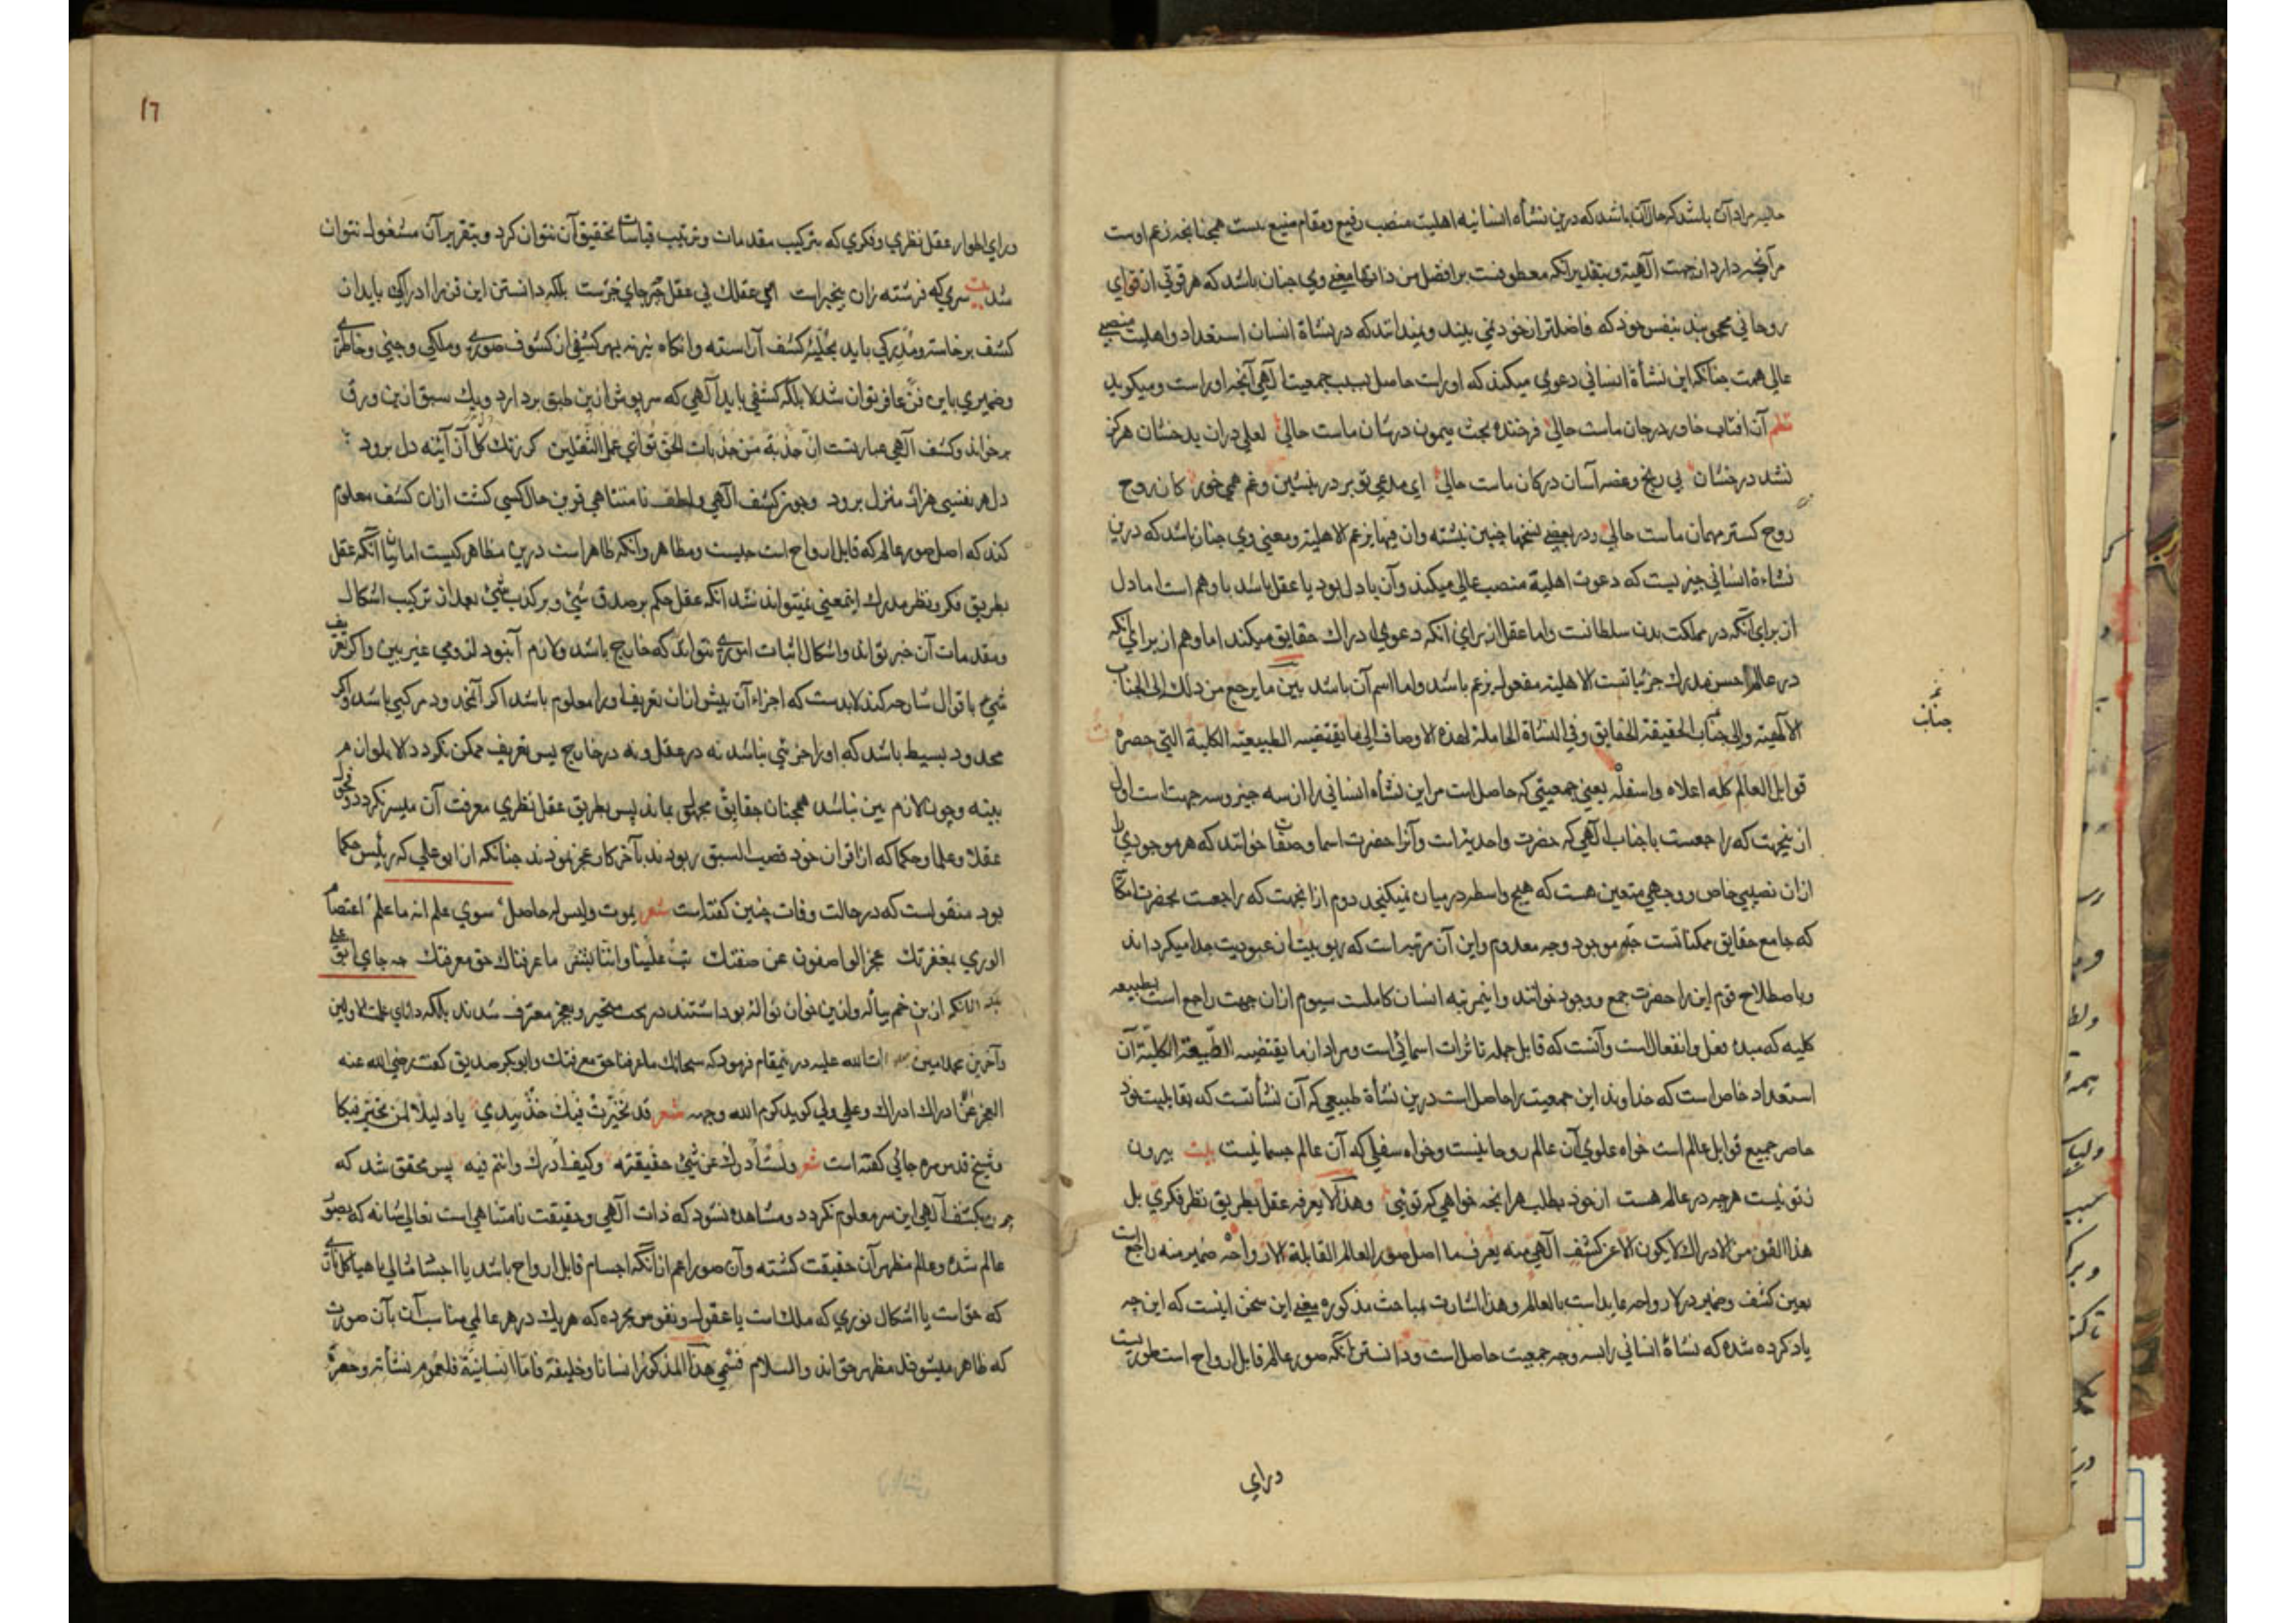 حالیه مراد آن باشد که حال آن باشد که درین نشأه انسانیه اهلیت منصب رفیع ومقام منیع نیست همچنانچه زعم اوست
مرآنچه دارد از جهت آلهیة وبتقدیر آنکه معطوفست بر افضل من ذاتها معنی وی چنان باشد که هر قوتی از قوای
روحانی محجوبند بنفس خود که فاضلتر از خود نمی بیند ونمیدانند که در نشاة انسان استعداد واهلیت منصبی
عالی هست چنانکه این نشأة انسانی دعوی میکند که او راست حاصل بسبب جمعیت آلهی آنچه او راست ومیکوید
نظم آن افتاب خاور در جان ماست حالی فرخنده بخت میمون در شان ماست حالی لعلی در ان بدخشان هرکز
نشد درخشان بی رنج وغصه آسان در کان ماست حالی ای مدعی تو بر در بنشین وغم همی خور کان روح
روح کستر مهمان ماست حالی ودر بعضی نسخها چنین نبشته وان فیها یزعم الاهلیة ومعنی وی چنان باشد که درین
نشاءة انسانی چیزیست که دعوت اهلیة منصب عالی میکند وآن یا دل بود یا عقل باشد یا وهم است اما دل
از برای آنکه در مملکت بدن سلطانست واما عقل از برای آنکه دعوی ادراك حقایق میکند اما وهم از برای آنکه
در عالم حس مدرك جزئیاتست الاهلیة مفعول یزعم باشد واما اسم آن باشد بین ما یرجع من ذلك الی الجناب
الآلهیة والی جناب الحقیقة الحقایق وفی النشاة الحاملة لهذه الاوصاف الی ما یقتضیه الطبیعة الکلیة التی حصرة
جناب
قوابل العالم کله اعلاه واسفله یعنی جمعیتی که حاصل است مراین نشأه انسانی را از سه چیز وسه جهت است اول
از ینجهت که راجعست با جناب آلهی که حضرت واحدیت است وآنرا حضرت اسما وصفات خوانند که هر موجودی را
ازان نصیبی خاص ووجهی متعین هست که هیچ واسطه درمیان نمیکنجد دوم از انجهت که راجعست بحضرت امکان
که جامع حقایق ممکناتست چه موجود وچه معدوم واین آن مرتبه است که ربوبیت از عبودیت جدا میکرداند
وباصطلاح قوم این را حضرت جمع ووجود خوانند واینمرتبه انسان کاملست سیوم ازان جهت راجع است بطبیعه
کلیه که مبدء فعل وانفعال است وآنست که قابل جمله تاثرات اسمائی است ومراد از ما یقتضیه الطبیعة الکلیة آن
استعداد خاص است که خداوند این جمعیت را حاصل است درین نشأة طبیعی که آن نشأتست که بقابلیت خود
حاصر جمیع قوابل عالم است خواه علوی آن عالم روحانیست وخواه سفلی که آن عالم جسمانیست بیت بیرون
ز تو نیست هرچه در عالم هست از خود بطلب هر انچه خواهی که توئی وهذا لا یعرفه عقل بطریق نظر فکری بل
هذا الفن من الادراك لا یکون الا عن کشف آلهی منه یعرف ما اصل صور العالم القابلة لارواحه ضمیر منه راجع است
بعین کشف وضمیر در لارواحه عاید است بالعالم وهذا اشارت بمباحث مذکوره یعنی این سخن اینست که این چه
یاد کرده شده که نشاة انسانی را بسه وجه جمعیت حاصل است ودانستن آنکه صور عالم قابل ارواح است طوریست
درای
١٦
ورای اطوار عقل نظری وفکری که بترکیب مقدمات وترتیب قیاسات تحقیق آن نتوان کرد وبتقریر آن مشغول نتوان
شد بیت سری که فرشته زان بیخبر است ای عقلك بی عقل چه جای خبرست بلکه دانستن این فن را ادراکی باید از
کشف برخاسته ومدرکی باید بحلیه کشف آراسته وانکاه نیز نه بهر کشفی از کشوف صوری وملکی وجنی وخاطری
وضمیری باین فن عارف توان شد لا بلکه کشفی باید آلهی که سرپوش ازین طبق بردارد ویك سبق ازین ورق
برخواند وکشف آلهی عبارتست از جذبة من جذبات الحق توازی عمل الثقلین کر زنك کل آن آئینه دل برود
دل هر نفسی هزار منزل برود وچون کشف آلهی ولطف نامتناهی قرین حال کسی کشت ازان کشف معلوم
کند که اصل صور عالم که قابل ارواح است چیست ومظاهر وآنکه ظاهر است درین مظاهر کیست اما بیان آنکه عقل
بطریق فکر ونظر مدرك اینمعنی نمیتواند شد آنکه عقل حکم بر صدق شئ وبر کذب شئ بعد از ترکیب اشکال
ومقدمات آن خبر تواند واشکال اثبات اموری نتواند که خارج باشد ولازم آن بود لزومی غیر بین واکر تعریف
شئ باقوال شارحه کند لابدست که اجزاء آن پیش ازان تعریف او را معلوم باشد اکر آن محدود مرکبی باشد واکر
محدود بسیط باشد که او را جزئی نباشد نه در عقل ونه در خارج پس تعریف ممکن نکردد الا بلوازم
بینه وچون لازم بین نباشد همچنان حقایق مجهول بماند پس بطریق عقل نظری معرفت آن میسر نکردد وفحول
عقلا وعلما وحکما که از اقران خود قصب السبق ربودند بآخر کار عجز نمودند چنانکه از ابو علی که رئیس حکما
بود منقولست که در حالت وفات چنین کفته است شعر یموت ولیس له حاصل سوی علمه انه ما علم اعتصام
الوری بمغفرتك عجز الواصفون عن صفتك تب علینا فاننا بشر ما عرفناك حق معرفتك چه جای ابو علی
بلکه آنانکه ازین خم پیاله وازین خوان نواله بود اشتند در بحث متحیر وبعجز معترف شدند بلکه دانای علمت الاولین
وآخرین محمد امین صلوات الله علیه درینمقام فرمود که سبحانك ما عرفنا حق معرفتك وابو بکر صدیق کفت رضی الله عنه
العجز عن ادراك ادراك وعلی ولی کوید کرم الله وجهه شعر قد تحیرت فیك خذ بیدی یا دلیلا لمن تحیر فیکا
وشیخ قدس سره جائی کفته است شعر ولست ادرك عن شئ حقیقته وکیف ادرك وانتم فیه پس محقق شد که
جز بکشف آلهی این سر معلوم نکردد ومشاهده نشود که ذات آلهی وحقیقت نامتناهی است تعالی شانه که بصور
عالم شده وعالم مظهر آن حقیقت کشته وآن صور اعم از آنکه اجسام قابل ارواح باشد یا اجساد مثالی یا هیاکل
که حق است یا اشکال نوری که ملك است یا عقول ونفوس مجرده که هر یك در هر عالمی مناسب آن بآن صورت
که ظاهر میشوند مظهر حق اند والسلام فسمی هذا المذکور انسانا وخلیفة فاما انسانیة فلعموم نشأته وحصره